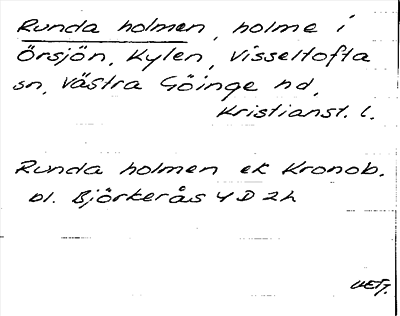 Runda holmen, holme i
Örsjön, Kylen, Visseltofta
sn, Västra Göinge hd,
Kristianst. l.
Runda holmen ek Kronob.
bl. Björkerås 4D 2h